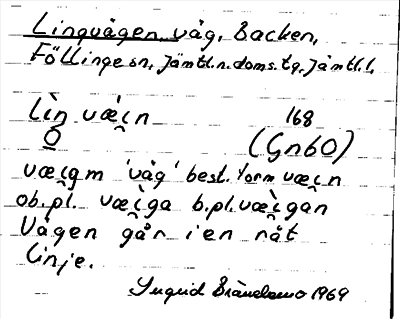 Linguägen väg, Backen,
Föllinge sn, Jämtl.n.doms.tg. Jämtl.l.
lìn væ̀i̯n 168
O (Gn60)
væi̯gm 'väg' best. form væi̯n
ob.pl. væ̀i̯ga b.pl. væ̀i̯gan
Vägen går i en rät
linje.
Ingrid Brändemo 1969